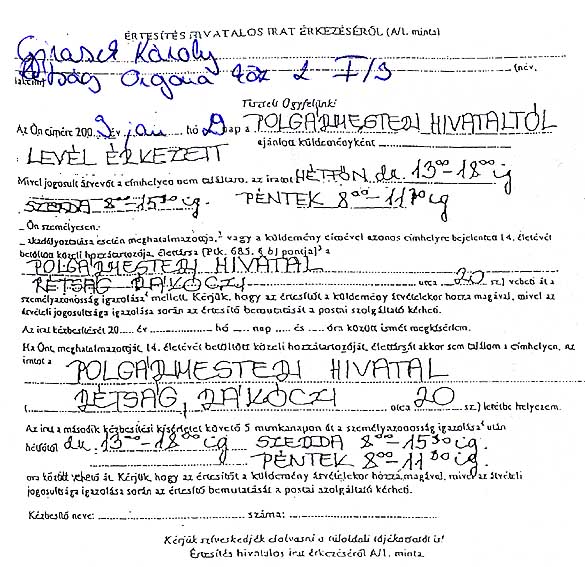 ÉRTESÍTÉS HIVATALOS IRAT ÉRKEZÉSÉRŐL (A/1. minta)
Károly
(név,
Rétság Orgona köz 2 I/3
lakcím)
Tisztelt Ügyfelünk!
Az Ön címére 2009 év jan hó 29 nap a POLGÁRMESTERI HIVATALTÓL
LEVÉL ÉRKEZETT ajánlott küldeményként
Mivel jogosult átvevőt a címhelyen nem találtam, az iratot HÉTFŐN du. 13⁰⁰-18⁰⁰ ig
SZERDA 8⁰⁰-15³⁰ ig PÉNTEK 8⁰⁰-11³⁰ ig
_ Ön személyesen,
_ akadályoztatása esetén meghatalmazottja,³ vagy a küldemény címével azonos címhelyre bejelentett 14. életévét
betöltött közeli hozzátartozója, élettársa (Ptk. 685. § b) pontja)³ a
POLGÁRMESTERI HIVATAL
RÉTSÁG RÁKÓCZI utca 20 sz.) veheti át a
személyazonosság igazolása⁴ mellett. Kérjük, hogy az értesítőt a küldemény átvételekor hozza magával, mivel az
átvételi jogosultsága igazolása során az értesítő bemutatását a postai szolgáltató kérheti.
Az irat kézbesítését 20.... év ............ hó .... nap .... és .... óra között ismét megkísérlem.
Ha Önt, meghatalmazottját, 14. életévét betöltött közeli hozzátartozóját, élettársát akkor sem találom a címhelyen, az
iratot a POLGÁRMESTERI HIVATAL
(RÉTSÁG, RÁKÓCZI utca 20 sz.) letétbe helyezem.
Az irat a második kézbesítési kísérletet követő 5 munkanapon át a személyazonosság igazolása⁴ után
hétfőtől du. 13⁰⁰-18⁰⁰ ig SZERDA 8⁰⁰-15³⁰ ig.
PÉNTEK 8⁰⁰-11³⁰ ig.
óra között vehető át. Kérjük, hogy az értesítőt a küldemény átvételekor hozza magával, mivel az átvételi
jogosultsága igazolása során az értesítő bemutatását a postai szolgáltató kérheti.
Kézbesítő neve: .......................... száma: ..........................
Kérjük szíveskedjék elolvasni a túloldali tájékoztatót is!
Értesítés hivatalos irat érkezéséről A/1. minta.